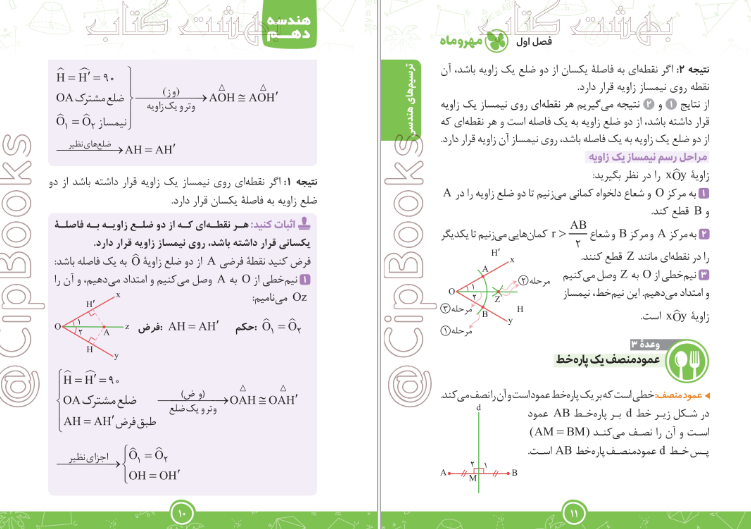 هندسه
دهم
Ĥ = Ĥ′ = ۹۰
OA ضلع مشترک
Ô₁ = Ô₂ نیمساز
(وز)
وتر و یک زاویه
AOH ≅ AOH′
ضلع‌های نظیر
AH = AH′
نتیجه ۱: اگر نقطه‌ای روی نیمساز یک زاویه قرار داشته باشد از دو
ضلع زاویه به فاصلهٔ یکسان قرار دارد.
اثبات کنید: هر نقطه‌ای که از دو ضلع زاویه به فاصلهٔ
یکسانی قرار داشته باشد، روی نیمساز زاویه قرار دارد.
فرض کنید نقطهٔ فرضی A از دو ضلع زاویهٔ Ô به یک فاصله باشد:
۱ نیم‌خطی از O به A وصل می‌کنیم و امتداد می‌دهیم، و آن را
Oz می‌نامیم:
فرض: AH = AH′ حکم: Ô₁ = Ô₂
H′
x
O
۱
۲
A
z
H
y
Ĥ = Ĥ′ = ۹۰
OA ضلع مشترک
AH = AH′ طبق فرض
(وض)
وتر و یک ضلع
OAH ≅ OAH′
اجزای نظیر
Ô₁ = Ô₂
OH = OH′
۱۰
فصل اول
مهروماه
ترسیم‌های هندسی
نتیجه ۲: اگر نقطه‌ای به فاصلهٔ یکسان از دو ضلع یک زاویه باشد، آن
نقطه روی نیمساز زاویه قرار دارد.
از نتایج ۱ و ۲ نتیجه می‌گیریم هر نقطه‌ای روی نیمساز یک زاویه
قرار داشته باشد، از دو ضلع زاویه به یک فاصله است و هر نقطه‌ای که
از دو ضلع یک زاویه به یک فاصله باشد، روی نیمساز آن زاویه قرار دارد.
مراحل رسم نیمساز یک زاویه
زاویهٔ xÔy را در نظر بگیرید:
۱ به مرکز O و شعاع دلخواه کمانی می‌زنیم تا دو ضلع زاویه را در A
و B قطع کند.
۲ به مرکز A و مرکز B و شعاع r > AB/۲ کمان‌هایی می‌زنیم تا یکدیگر
را در نقطه‌ای مانند Z قطع کنند.
۳ نیم‌خطی از O به Z وصل می‌کنیم
و امتداد می‌دهیم. این نیم‌خط، نیمساز
زاویهٔ xÔy است.
H′
x
A
مرحله ۲
O
۱
۲
Z
H
B
مرحله ۳
y
مرحله ۱
وعدهٔ ۳
عمودمنصف یک پاره‌خط
عمودمنصف: خطی است که بر یک پاره‌خط عمود است و آن را نصف می‌کند.
در شکل زیر خط d بر پاره‌خط AB عمود
است و آن را نصف می‌کند (AM = BM)
پس خط d عمودمنصف پاره‌خط AB است.
d
۲
۱
A
M
B
۱۱
بهشت کتاب
بهشت کتاب
@CipBooks
@CipBooks